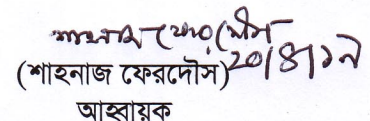 শাহনাজ ফেরদৌস
২০/৪/১৯
(শাহনাজ ফেরদৌস)
আহ্বায়ক